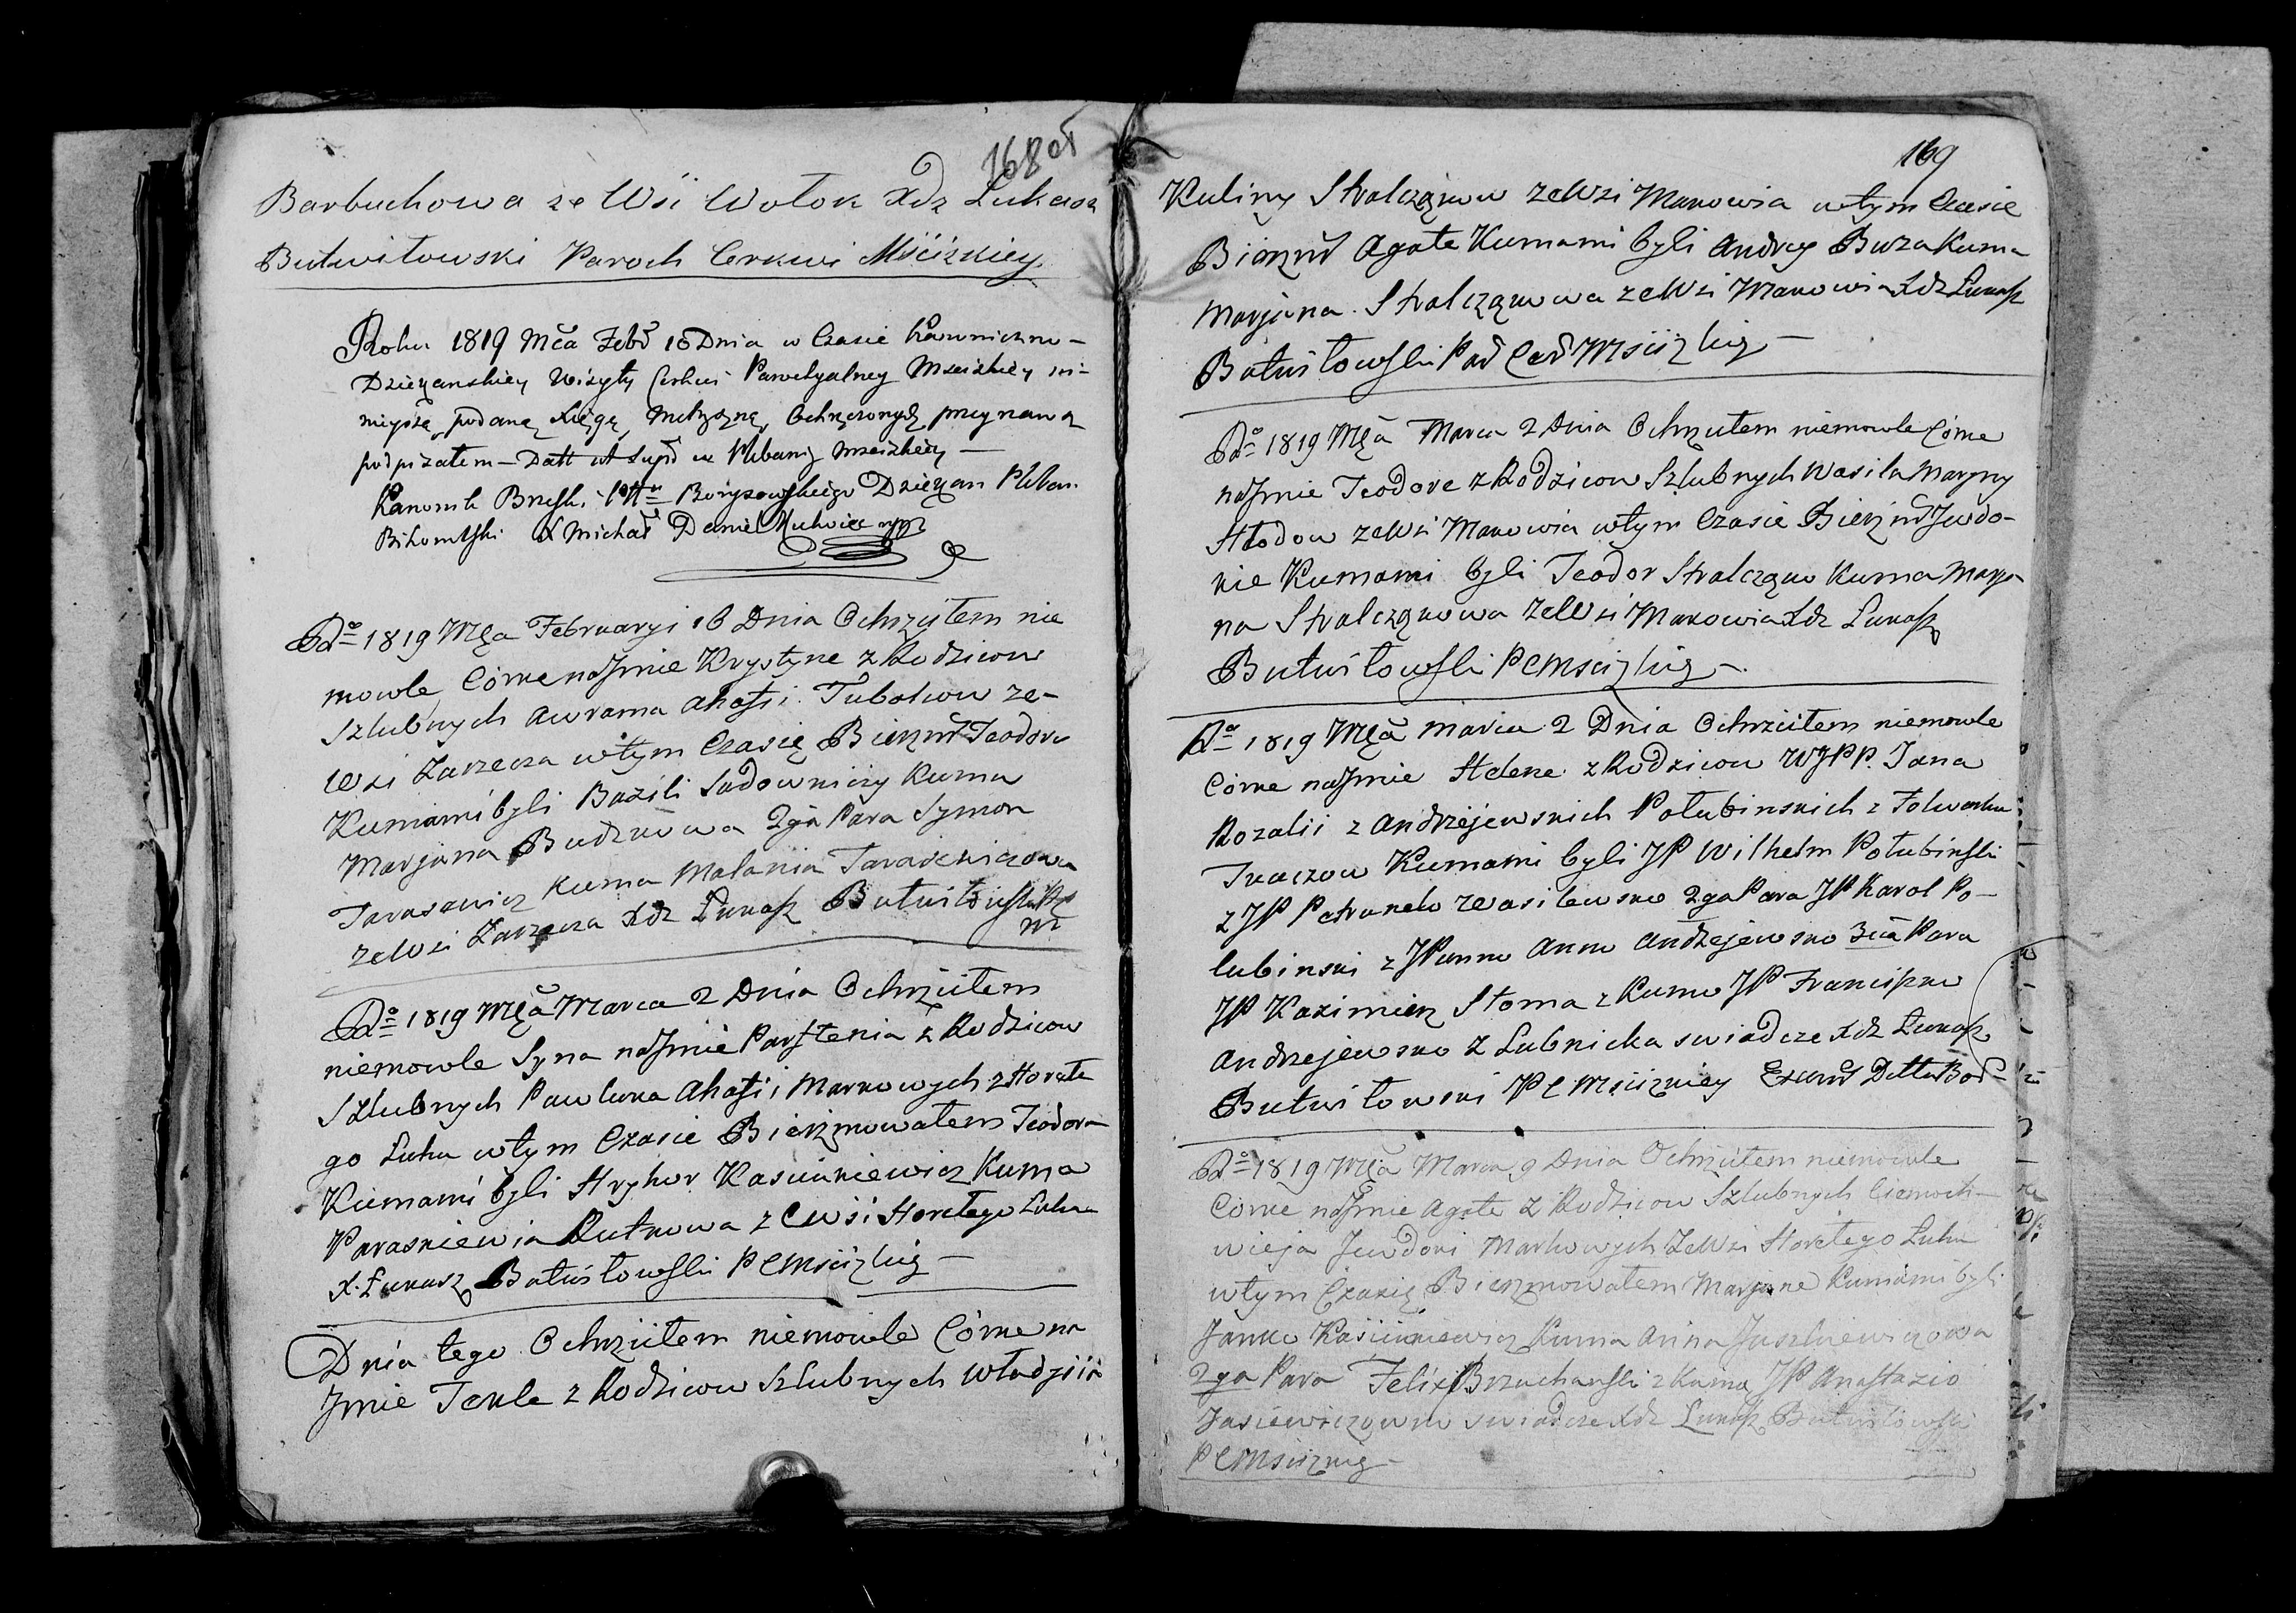 168 об
Barbuchowa ze Wsi Wołok Xdz Łukasz
Butwiłowski Paroch Cerkwi Mściżkiey.
Roku 1819 Mca Febr 16 Dnia w Czasie Kanniczno-
Dziekanskiey Wizyty Cerkwi Parochyalney Mścizkiey ni-
nieyszą podaną Xięgę Metryczną Ochrzczonych przeyrzawszy
podpisałem – Datt ut supr w Plebanij Mscizkiey –
Kanonik Brzeski Ptu Boryssowskiego Dziekan Pleban
Bihomlski X Michał Daniel
Rº 1819 Mca Februaryi 16 Dnia Ochrzciłem nie
mowle Córkę na Jmie Krystyne z Rodzicow
Szlubnych Awrama Ahafii Tubolcow ze-
Wsi Zarzecza w tym Czasie Bierzm Teodore
Kumami byli Bazili Sadowniczy Kuma
Marjana Budzkowa 2ga Para Symon
Tarasewicz Kuma Malania Tarasewiczowa
ze Wsi Zarzecza Xdz Łukasz Butwiłowski P C
M
Rº 1819 Mca Marca 2 Dnia Ochrzciłem
niemowle Syna na Jmie Parftenia z Rodzicow
Szlubnych Pawluka Ahafii Markowych z Horełe
go Łuhu w tym Czasie Bierzmowałem Teodora
Kumami byli Hryhor Kasciukiewicz Kuma
Paraskiewia Rutkowa z Cwsi Horełego Łuhu
X. Łukasz Butwiłowski P C Mścizkiy –
Dnia tego Ochrzciłem niemowle Córke na
Jmie Tekle z Rodzicow Szlubnych Władzisia
169
Kuliny Stralcząkow ze Wsi Makowia w tym Czasie
Bierzm Agate Kumami byli Andrey Buza Kuma
Marjana Stralcząkowa ze Wsi Makowia Xdz Łukasz
Butwiłowski Par Cer Mścizkiy –
Rº 1819 Mca Marca 2 Dnia Ochrzciłem niemowle Córke
na Jmie Teodore z Rodzicow Szlubnych Wasila Maryny
Hłodow ze Wsi Makowia w tym Czasie Bierzm Jewdo-
kie Kumami byli Teodor Stralcząk Kuma Marja-
na Stralcząkowa ze Wsi Makowia Xdz Łukasz
Butwiłowski P C Mścizkiy –
Rº 1819 Mca Marca 2 Dnia Ochrzciłem niemowle
Córke na Jmie Helene z Rodzicow WJPP. Jana
Rozalii z Andrzejewskich Połubinskich z Folwarku
Tkaczow Kumami byli JP Wilhelm Połubinski
z JP Petrunelo Wasilewsko 2ga Para JP Karol Po-
łubinski z JPanno Anno Andrzejewsko 3cia Para
JP Kazimierz Słoma z Kumo JP Franciszko
Andrzejewsko z Lubnicka swiadcze Xdz Łukasz
Butwiłowski P C Mścizkiey
Rº 1819 Mca Marca 9 Dnia Ochrzciłem niemowle
Córke na Jmie Agate z Rodzicow Szlubnych Ciemoch-
wieja Jewdoki Markowych ze Wsi Horełego Łuhu
w tym Czasie Bierzmowałem Marjane Kumami byli
Janko Kasciukiewicz Kuma Anna Juszkiewiczowa
2ga Para Felix Brzuchanski z Kumo JP Anastazio
Jasiewiczowno swiadcze Xdz Łukasz Butwiłowski
P C Mścizkiy –